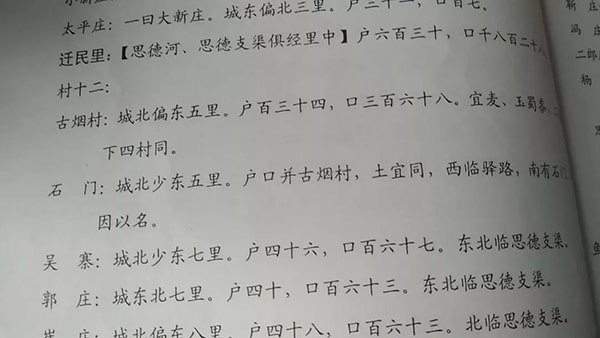 太平庄：一曰大新庄。城东偏北三里。户三十二，口百七。
迁民里：【思德河、思德支渠俱经里中】户六百三十，口千八百二十八
村十二：
古烟村：城北偏东五里。户百三十四，口三百六十八。宜麦、玉蜀黍、
下四村同。
石 门：城北少东五里。户口并古烟村，土宜同，西临驿路，南有石门，
因以名。
吴 寨：城北少东七里。户四十六，口百六十七。东北临思德支渠。
郭 庄：城东北七里。户四十，口百六十三。东北临思德支渠。
崔 庄：城北偏东八里。户四十八，口百六十三。北临思德支渠。
靳 庄
冯 庄
二郎
杨